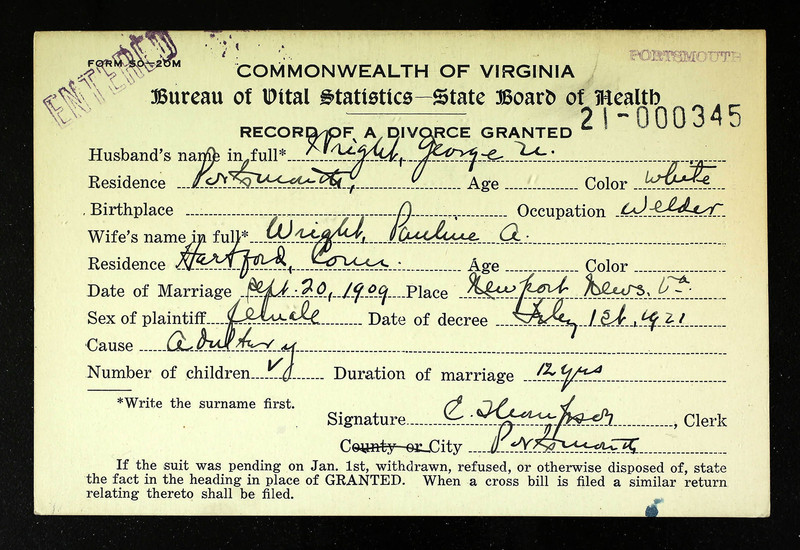 FORM SO-20M
ENTERED
PORTSMOUTH
COMMONWEALTH OF VIRGINIA
Bureau of Vital Statistics—State Board of Health
21-000345
RECORD OF A DIVORCE GRANTED
Husband's name in full* Wright, George
Residence Portsmouth, Age Color white
Birthplace Occupation Welder
Wife's name in full* Wright, Pauline A.
Residence Hartford, Conn. Age Color
Date of Marriage Sept. 20, 1909 Place Newport News, Va
Sex of plaintiff female Date of decree 1st, 1921
Cause Adultery
Number of children ✓ Duration of marriage 12 yrs
*Write the surname first.
Signature C. Thompson, Clerk
County or City Portsmouth
If the suit was pending on Jan. 1st, withdrawn, refused, or otherwise disposed of, state
the fact in the heading in place of GRANTED. When a cross bill is filed a similar return
relating thereto shall be filed.